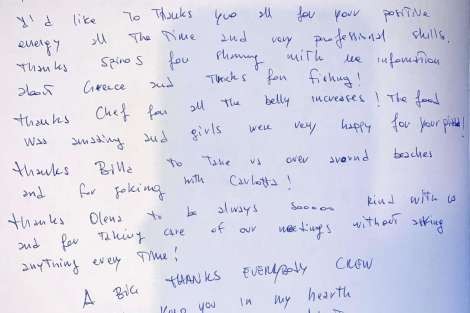 I'd like to thanks you all for your positive
energy all the time and very professional skills.
thanks Spiros for sharing with me information
about Greece and thanks for fishing!
thanks Chef for all the belly increases! The food
was amazing and girls were very happy for your pizza!
thanks Billa to take us over around beaches
and for joking with Carlotta!
thanks Olena to be always soooo kind with us
and for taking care of our meetings without asking
anything every time!
A BIG THANKS EVERYBODY CREW
Keep you in my hearth